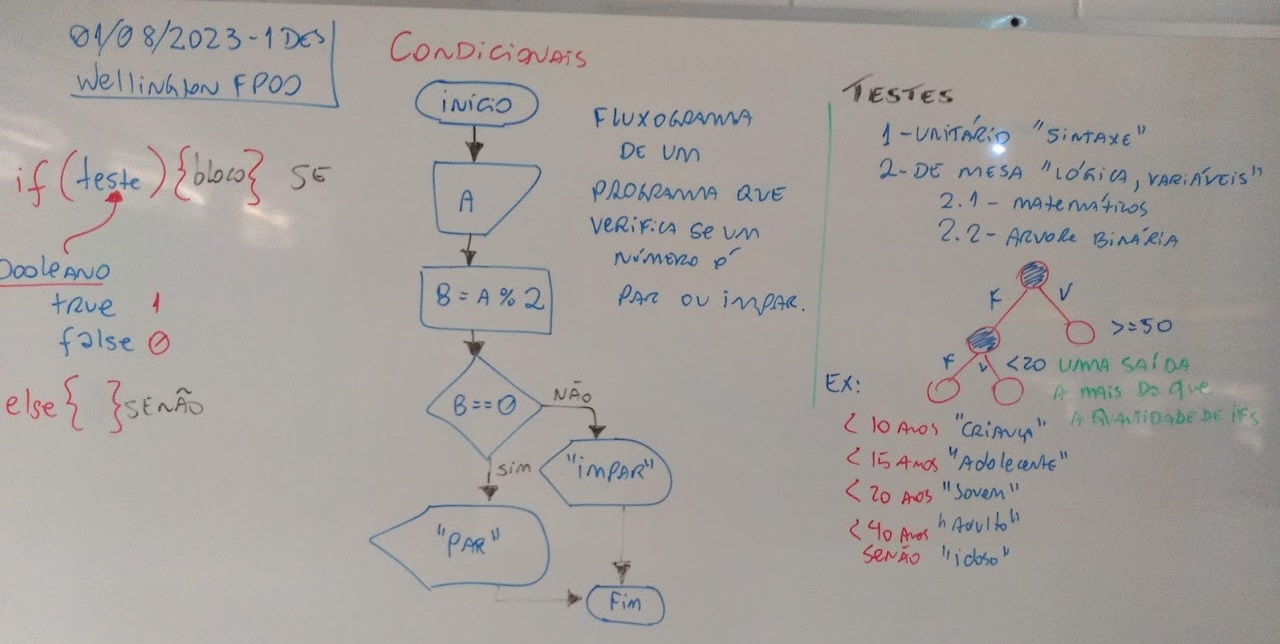 01/08/2023-1DES
Wellington FPOO
if (teste) {bloco} SE
booleano
true 1
false 0
else { } SENÃO
CONDICIONAIS
INÍCIO
A
B = A % 2
B==0
NÃO
SIM
"IMPAR"
"PAR"
FIM
FLUXOGRAMA
DE UM
PROGRAMA QUE
VERIFICA SE UM
NÚMERO É
PAR OU IMPAR.
TESTES
1-UNITÁRIO "SINTAXE"
2-DE MESA "LÓGICA, VARIÁVEIS"
2.1- MATEMÁTICOS
2.2- ARVORE BINÁRIA
F V
>=50
F V <20
UMA SAÍDA
A MAIS DO QUE
A QUANTIDADE DE IFS
EX:
< 10 ANOS "CRIANÇA"
< 15 ANOS "Adolecente"
< 20 ANOS "Jovem"
< 40 ANOS "Adulto"
SENÃO "idoso"